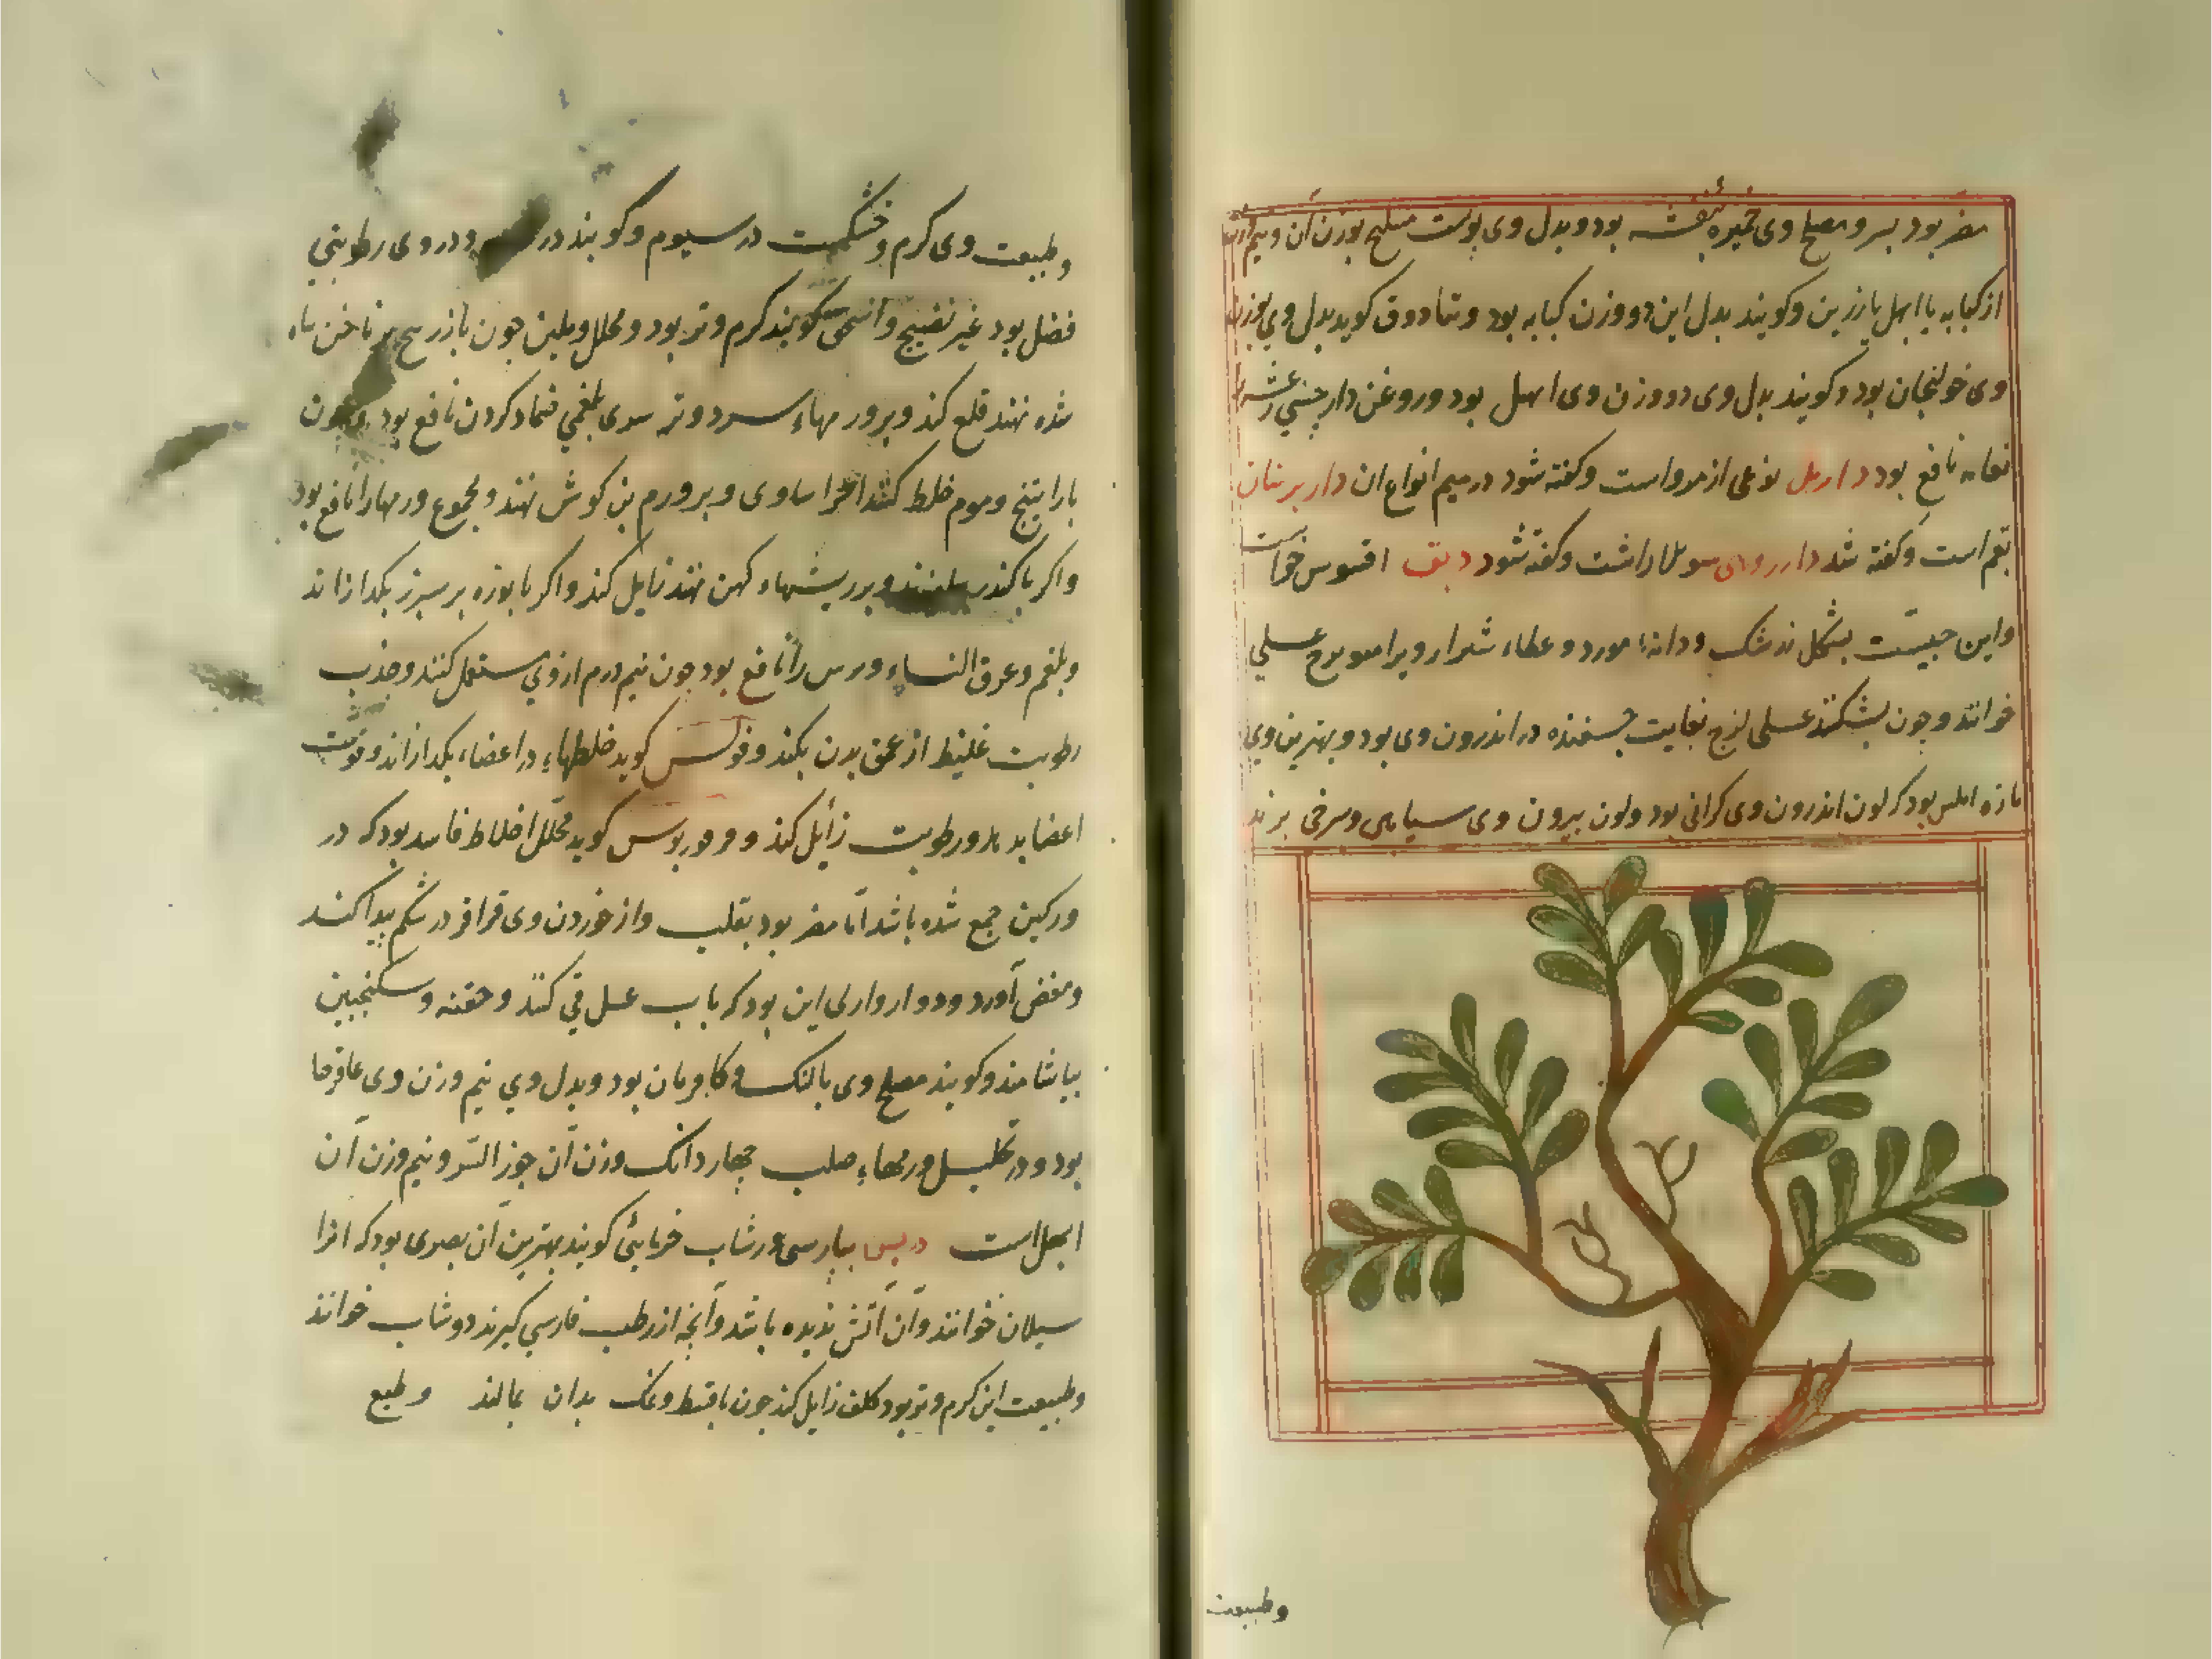 مضر بود بسر و مصلح وی خمیره بنفشه بود و بدل وی پوست سلیخ بوزن آن و نیم آن
از کبابه یا ابهل یا زرین و کویند بدل این دو وزن کبابه بود و تیادوق کوید بدل وی بوزن
وی خولنجان بود و کویند بدل وی دو وزن وی ابهل بود و روغن دارچینی رعشه را
نافع بود دارمل نوعی از مرو است و کفته شود در میم انواع ان دار برنیان
بقم است و کفته شد دار روی سو ملاراشت و کفته شود دبق
واین حبیست بشکل زرشک و دانه مورد و عسلی
خوانند و چون بشکنند عسلی لزج بغایت چسبنده در اندرون وی بود و بهترین وی
تازه املس بود که لون اندرون وی کراثی بود و لون بیرون وی سیاهی و سرخی برند
وطبیعت
وطبیعت وی کرم و خشکست در سیوم و کویند در و در وی رطوبتی
فضل بود غیر نضیج و اسحق کویند کرم و تر بود و محلل و ملین چون با زرنیح بر ناخن تباه
شده نهند قلع کند و برور مهاء سرد و تر سوی بلغمی ضماد کردن نافع بود و چون
با راتینج و موم خلط کنند اجزا ساوی و برورم بن کوش نهند و مجموع ورمها را نافع بود
واکر با کندر و برریشهاء کهن نهند زایل کند و اکر با بوزه بر سپرز بکدازاند
وبلغم و عرق النساء و را نافع بود چون نیم درم از وی مستعمل کنند و جذب
رطوبت غلیظ از عمق بدن بکند و فولس کوید خلطهاء در اعضاء بکدازاند و قوت
اعضا بد و رطوبت زایل کند و کوید محلل اخلاط فاسد بود که در
ورکین جمع شده باشد اما مضر بود بقلب و از خوردن وی قراقر در شکم پیدا کند
ومغص آورد و مداوای این بود که باب عسل قی کنند و حقنه و سکنجبین
بیاشامند و کویند مصلح وی بالنک و کاهو بود و بدل وی نیم وزن وی عاقرقرحا
بود و در تحلیل ورمهاء صلب چهار دانک وزن آن جوز السرو و نیم وزن آن
ابهل است دبس بپارسی دوشاب خرمائی کویند بهترین آن بصری بود که انرا
سیلان خوانند و آن آتش ندیده باشد و آنچه از رطب فارسی کیرند دوشاب خوانند
وطبیعت این کرم و تر بود کلف زایل کند چون با قسط و نمک بدان بمالند و طبع